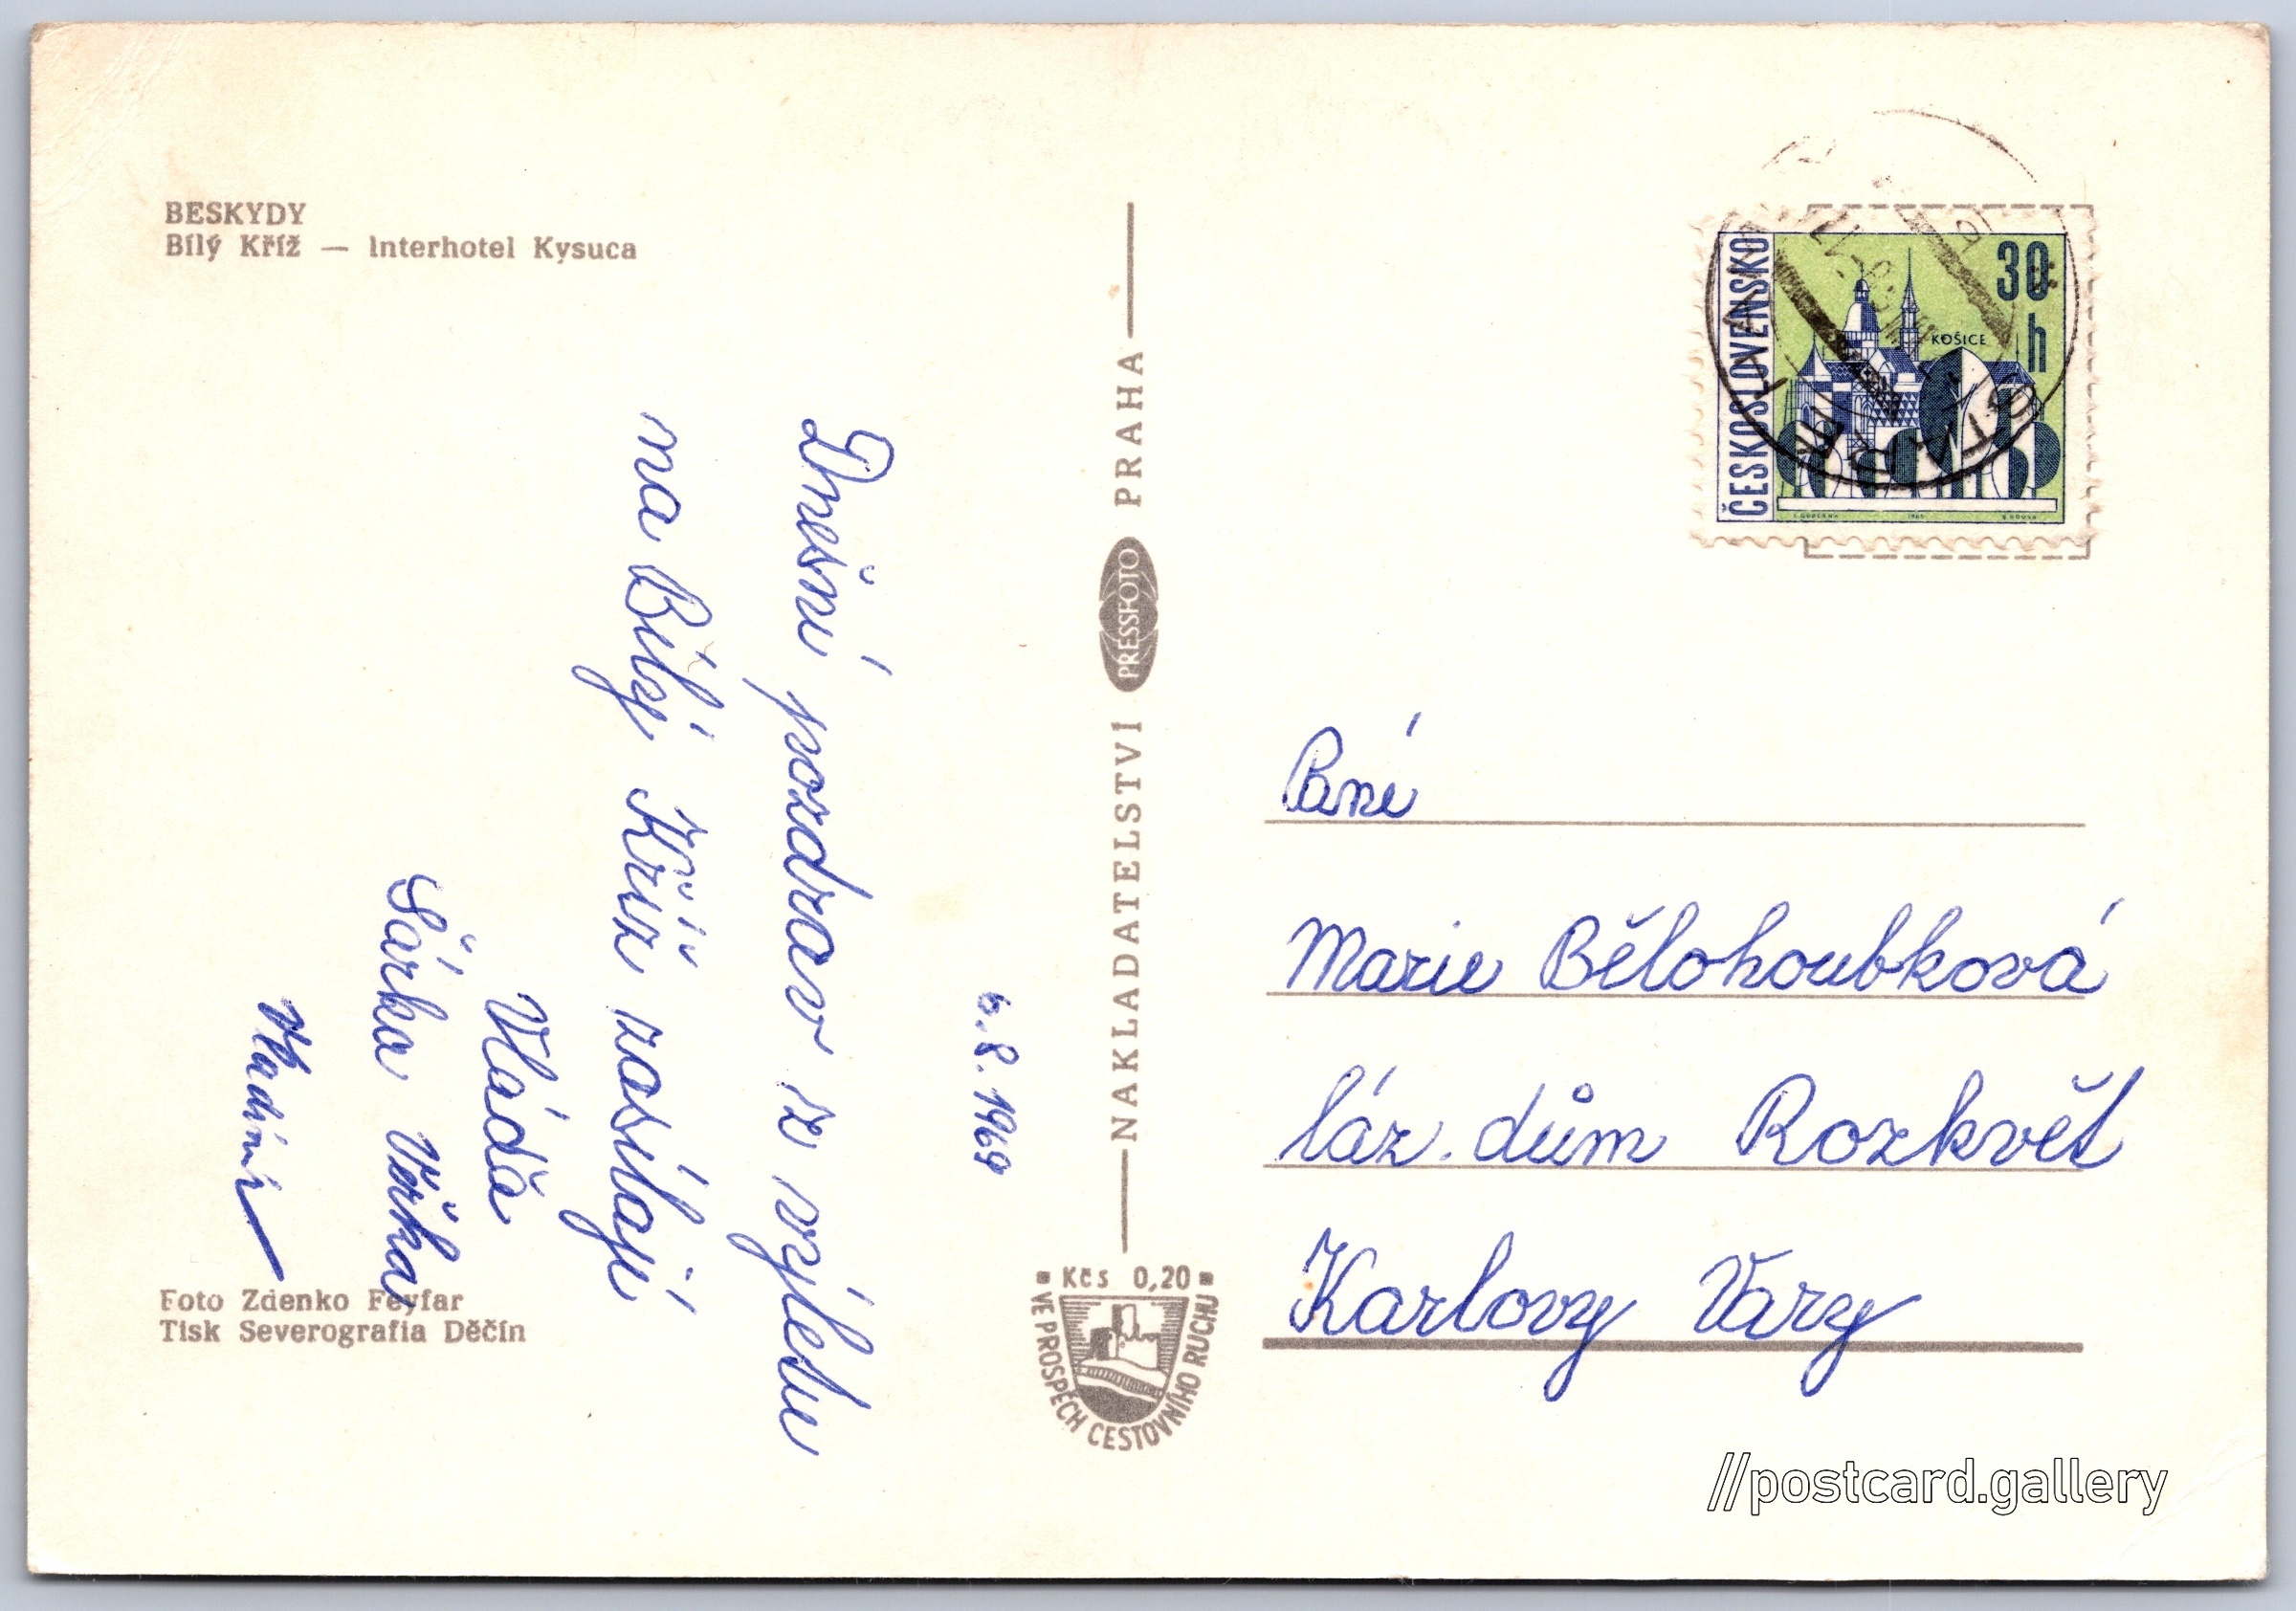 BESKYDY
Bílý Kříž — Interhotel Kysuca
6.8.1969
Dnešní pozdrav z výletu
na Bílý Kříž zasílají
Vláďa
Šárka Věrka
Vladimír
Foto Zdenko Feyfar
Tisk Severografia Děčín
NAKLADATELSTVÍ PRESSFOTO PRAHA
Kčs 0,20
VE PROSPĚCH CESTOVNÍHO RUCHU
ČESKOSLOVENSKO
30
h
KOŠICE
STARÉ
Paní
Marie Bělohoubková
láz. dům Rozkvět
Karlovy Vary
//postcard.gallery